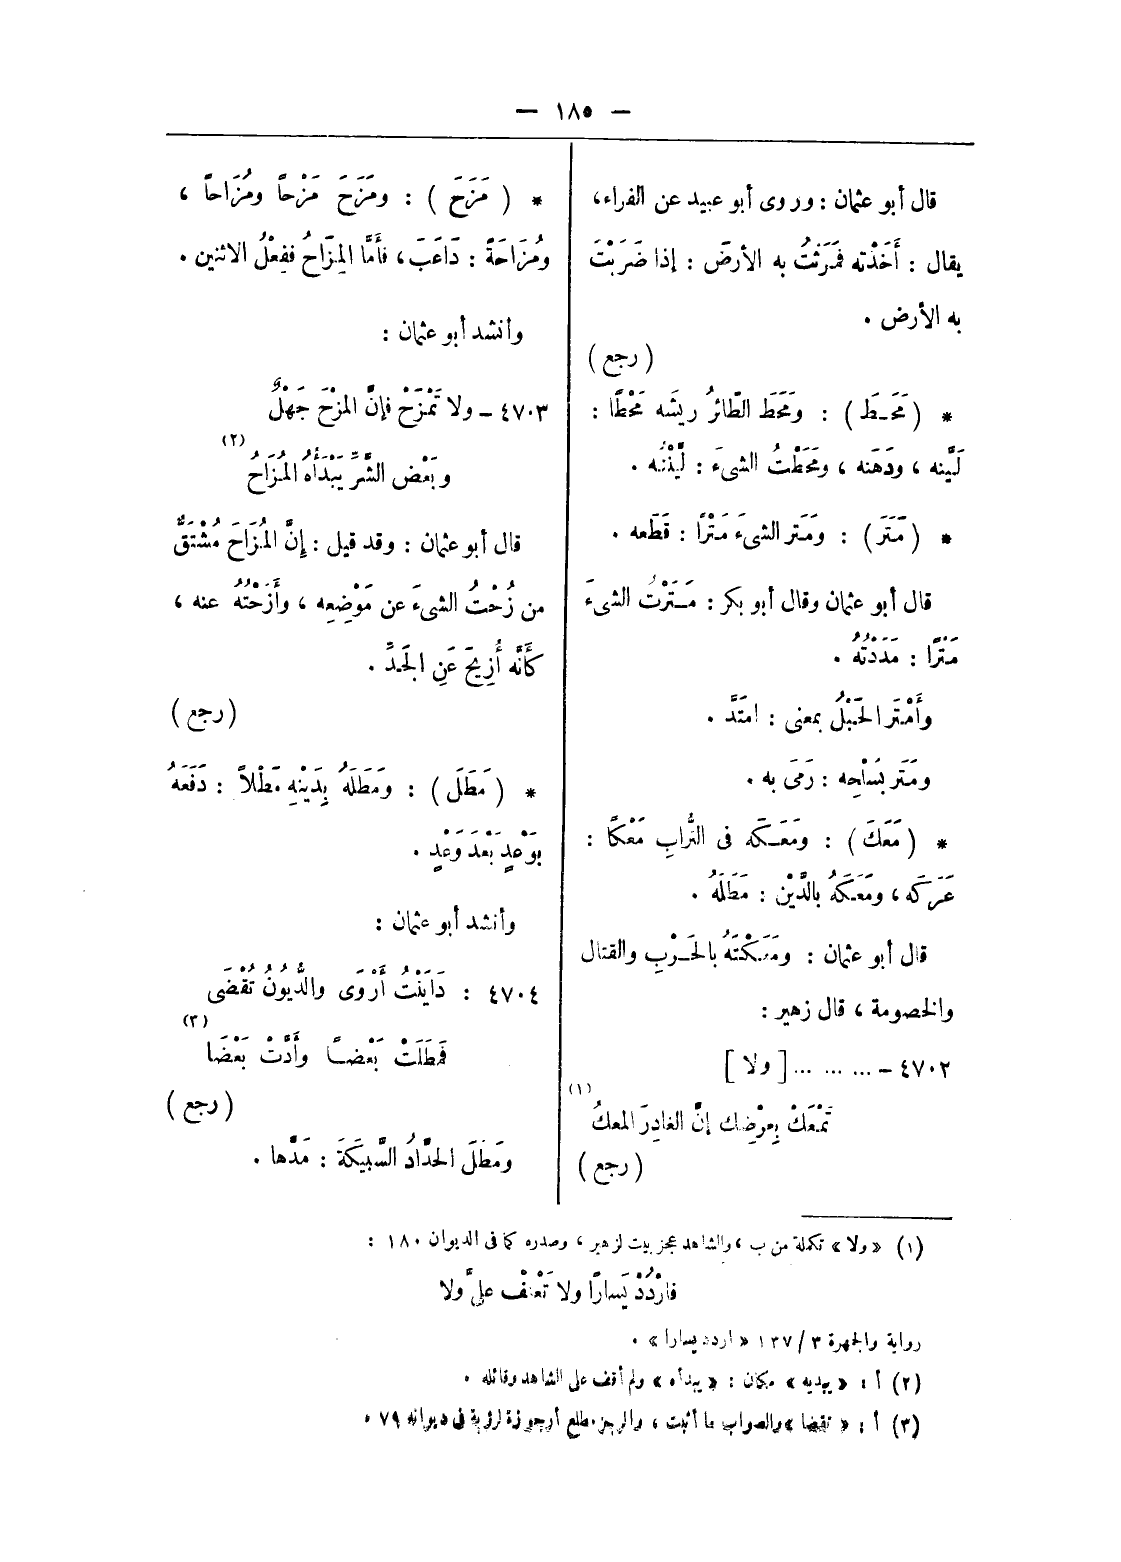 — ١٨٥ —
قال أبو عثمان : وروى أبو عبيد عن الفراء،
يقال : أَخَذْته فَمَرَثْتُ به الأرضَ : إذا ضَرَبْتَ
به الأرض .
( رجع )
* ( مَحَـطَ ) : وَمَحَط الطَّائرُ ريشَه مَحْطًا :
لَيَّنه ، ودَهَنه ، ومحَطْتُ الشىءَ : لَيَّنْتُه .
* ( مَتَرَ ) : ومَتَر الشىءَ مَتْرًا : قَطَعه .
قال أبو عثمان وقال أبو بكر : مَـتَرْتُ الشىءَ
مَتْرًا : مَدَدْتُه .
وأَمْتَر الحَبْلُ بمعنى : امتَدَّ .
ومَتَر بسَلْحِه : رَمَى به .
* ( مَعَكَ ) : ومَعَـكَه فى التُّرابِ مَعْكًا :
عَرَكه ، ومَعَكَهُ بالدَّيْن : مَطَلَهُ .
قال أبو عثمان : ومَعَكْتَهُ بالحَـرْبِ والقتال
والخصومة ، قال زهير :
٤٧٠٢ – ... ... ... [ ولا ]
تَمْعَكْ بِعِرْضِك إنَّ الغادِرَ المعكُ (١)
( رجع )
* ( مَزَحَ ) : ومَزَحَ مَزْحًا ومُزَاحًا ،
ومُزَاحَةً : دَاعَبَ ، فأمَّا المِزَاحُ ففِعْلُ الاثنين .
وأنشد أبو عثمان :
٤٧٠٣ – ولا تَمْزَحْ فإنَّ المزْحَ جَهْلٌ
وبَعْض الشَّرِّ يَبْدَأُه المُزَاحُ (٢)
قال أبو عثمان : وقد قيل : إنَّ المُزَاحَ مُشْتَقٌّ
من زُحْتُ الشىءَ عن مَوْضِعِه ، وأَزَحْتُهُ عنه ،
كأنَّه أُزِيحَ عَنِ الجَـدِّ .
( رجع )
* ( مَطَلَ ) : ومَطَلَهُ بِدَينْهِ مَطْلاً : دَفَعَهُ
بوَعْدٍ بَعْدَ وَعْدٍ .
وأنشد أبو عثمان :
٤٧٠٤ : دَايَنْتُ أَرْوَى والدُّيُونُ تُقْضَى
فَمَطَلَتْ بَعْضـًا وأَدَّتْ بَعْضَا (٣)
( رجع )
ومَطَلَ الحدَّادُ السَّبِيكَةَ : مَدَّها .
(١) «ولا» تكملة من ب ، والشاهد عجز بيت لزهير ، وصدره كما فى الديوان ١٨٠ :
فارْدُدْ يَسارًا ولا تَعْنُف علىَّ ولا
رواية والجمهرة ٣ / ١٣٧ « اردد يسارا » .
(٢) أ : « يبديه » مكان : « يبدأه » ولم أقف على الشاهد وقائله .
(٣) أ : « تقيضا » والصواب ما أثبت ، والرجز مطلع أرجوزة لرؤبة فى ديوانه ٧٩ .